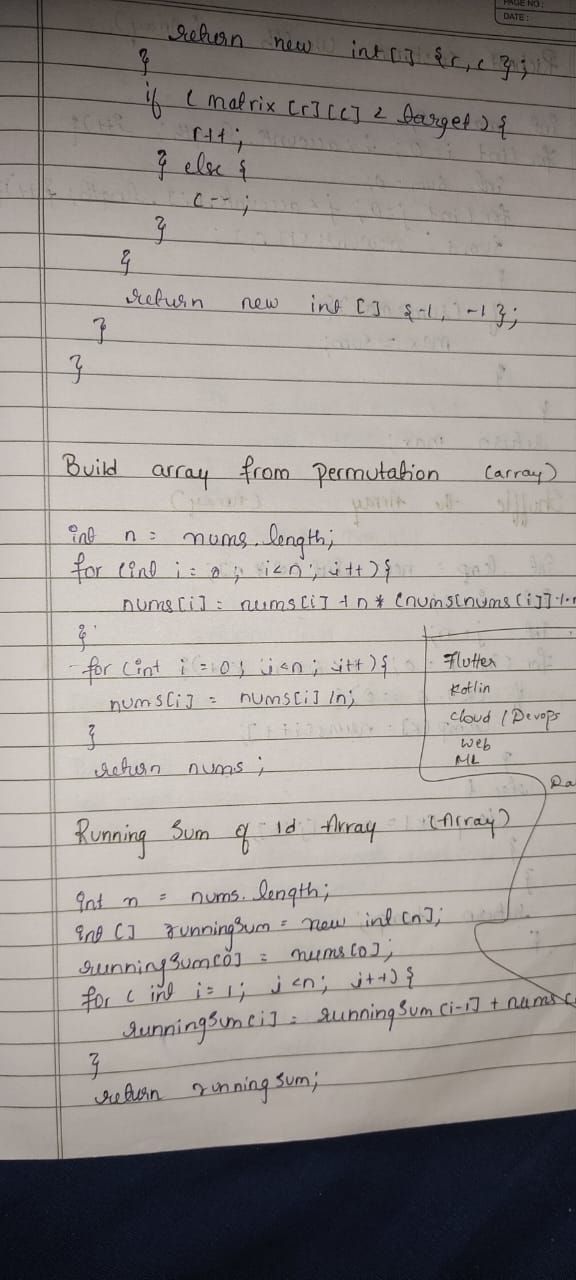 PAGE NO:
DATE:
return new int[] {r, c};
}
if (matrix[r][c] < target) {
r++;
} else {
c--;
}
}
return new int [] {-1, -1};
}
}
Build array from permutation (array)
int n = nums.length;
for (int i = 0; i<n; i++){
nums[i] = nums[i] + n* (nums[nums[i]]%
}
for (int i = 0; i<n; i++){
nums[i] = nums[i] /n;
}
return nums;
Flutter
Kotlin
Cloud / Devops
Web
ML
Da
Running Sum of 1d Array (Array)
int n = nums.length;
int [] runningSum = new int [n];
runningSum[0] = nums[0];
for ( int i= 1; i<n; i++) {
runningSum[i] = runningSum [i-1] + nums
}
return runningSum;